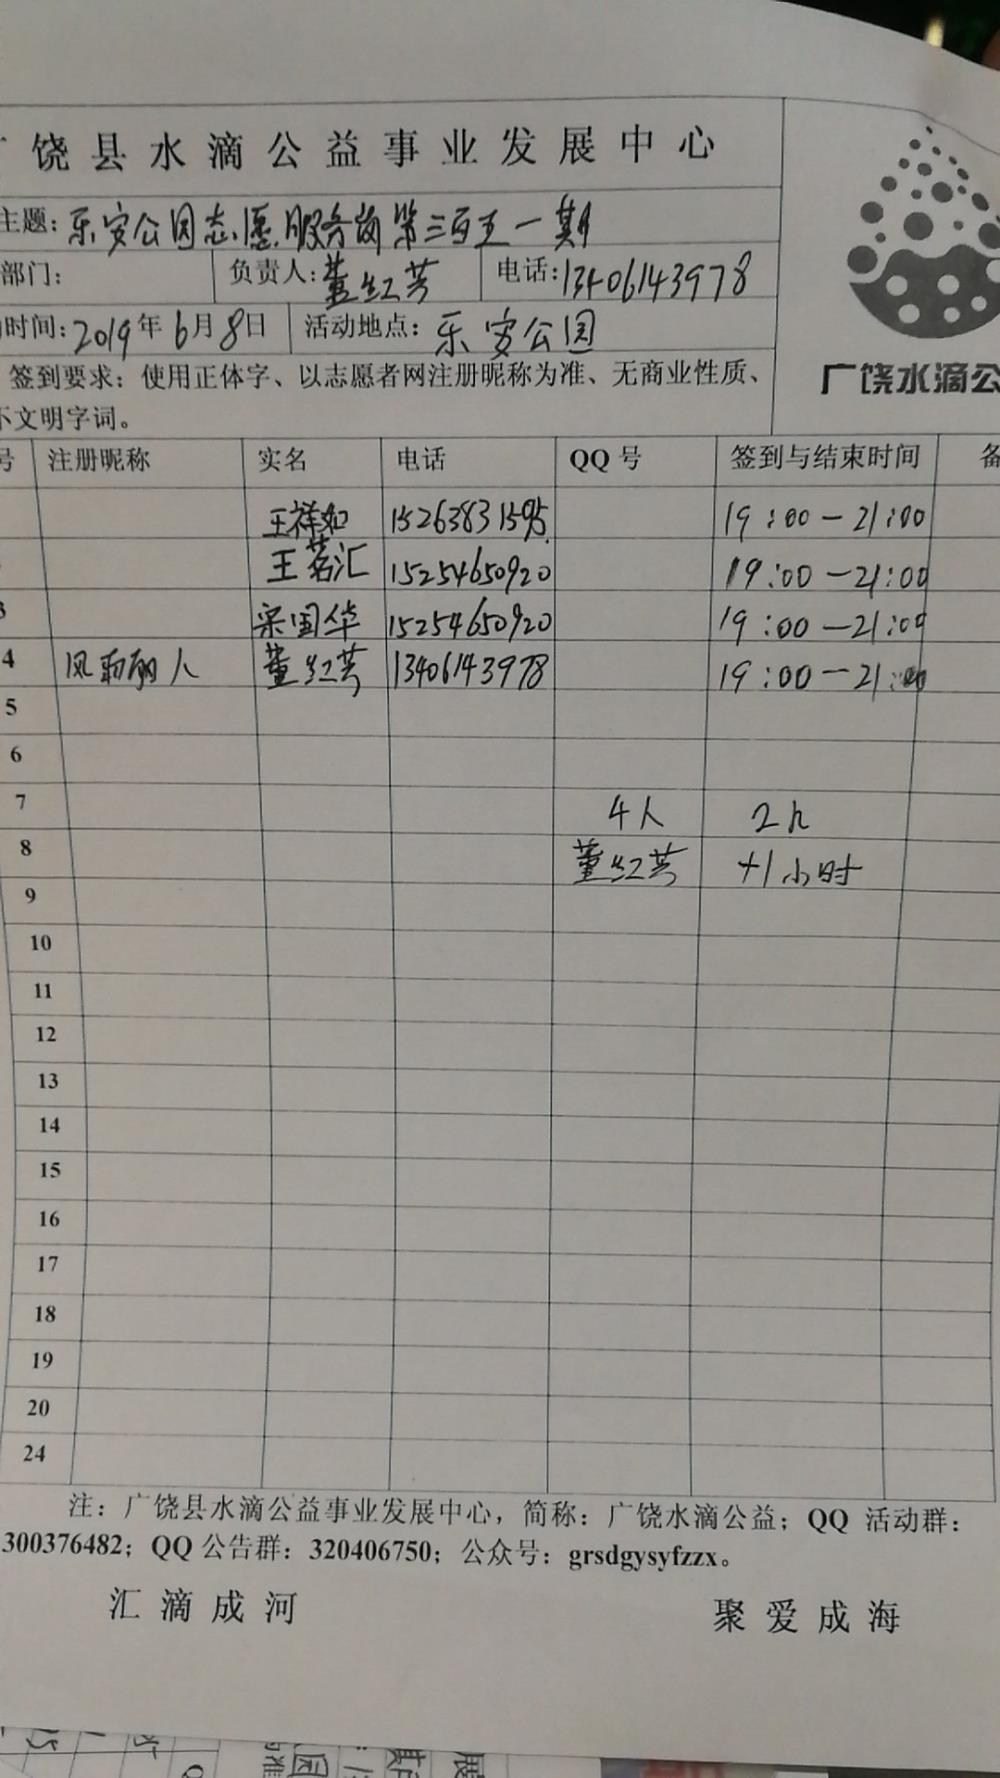 广饶县水滴公益事业发展中心
主题：乐安公园志愿服务岗第三百五一期
部门： 负责人：董红芳 电话：13406143978
时间：2019年6月8日 活动地点：乐安公园
签到要求：使用正体字、以志愿者网注册昵称为准、无商业性质、
不文明字词。
广饶水滴公
号 注册昵称 实名 电话 QQ号 签到与结束时间 备
王祥如 15263831595 19:00-21:00
王茗汇 15254650920 19:00-21:00
3 梁国华 15254650920 19:00-21:00
4 风雨丽人 董红芳 13406143978 19:00-21:00
5
6
7 4人 2h
8 董红芳 +1小时
9
10
11
12
13
14
15
16
17
18
19
20
24
注：广饶县水滴公益事业发展中心，简称：广饶水滴公益；QQ 活动群：
300376482；QQ公告群：320406750；公众号：grsdgysyfzzx。
汇滴成河 聚爱成海